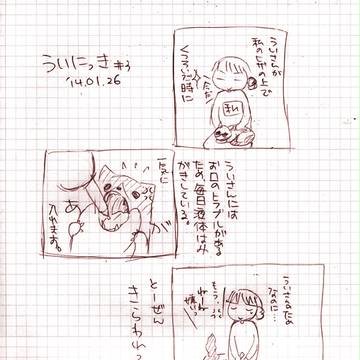 ういにっき #3
'14.01.26
ういさんが
私のヒザの上で
くつろいだ時に
ういさんには
お口のトラブルがある
ため、毎日液体はみ
がきしている。
一気に
が
あ
入れます。
ういさんのため
なのに…
もうっ
ねーね
嫌い
とーぜん
きらわれっ